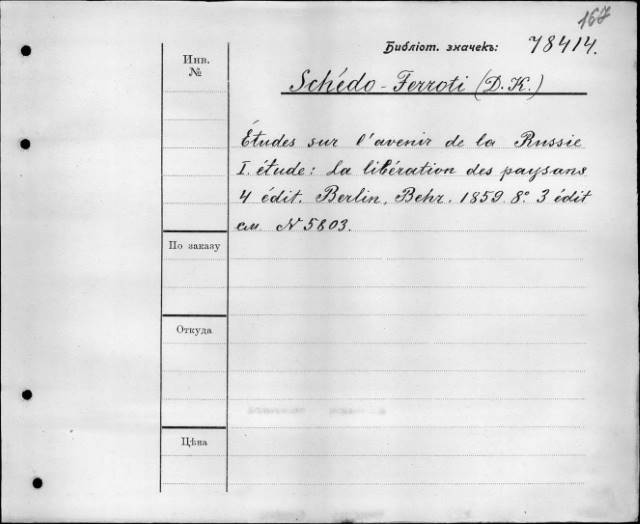 167
Библіот. значекъ: 78414.
Инв. №
Schédo-Ferroti (D. K.)
Études sur l'avenir de la Russie
I. étude: La libération des paysans
4 édit. Berlin, Behr. 1859. 8º. 3 édit
см. N 5803.
По заказу
Откуда
Цѣна